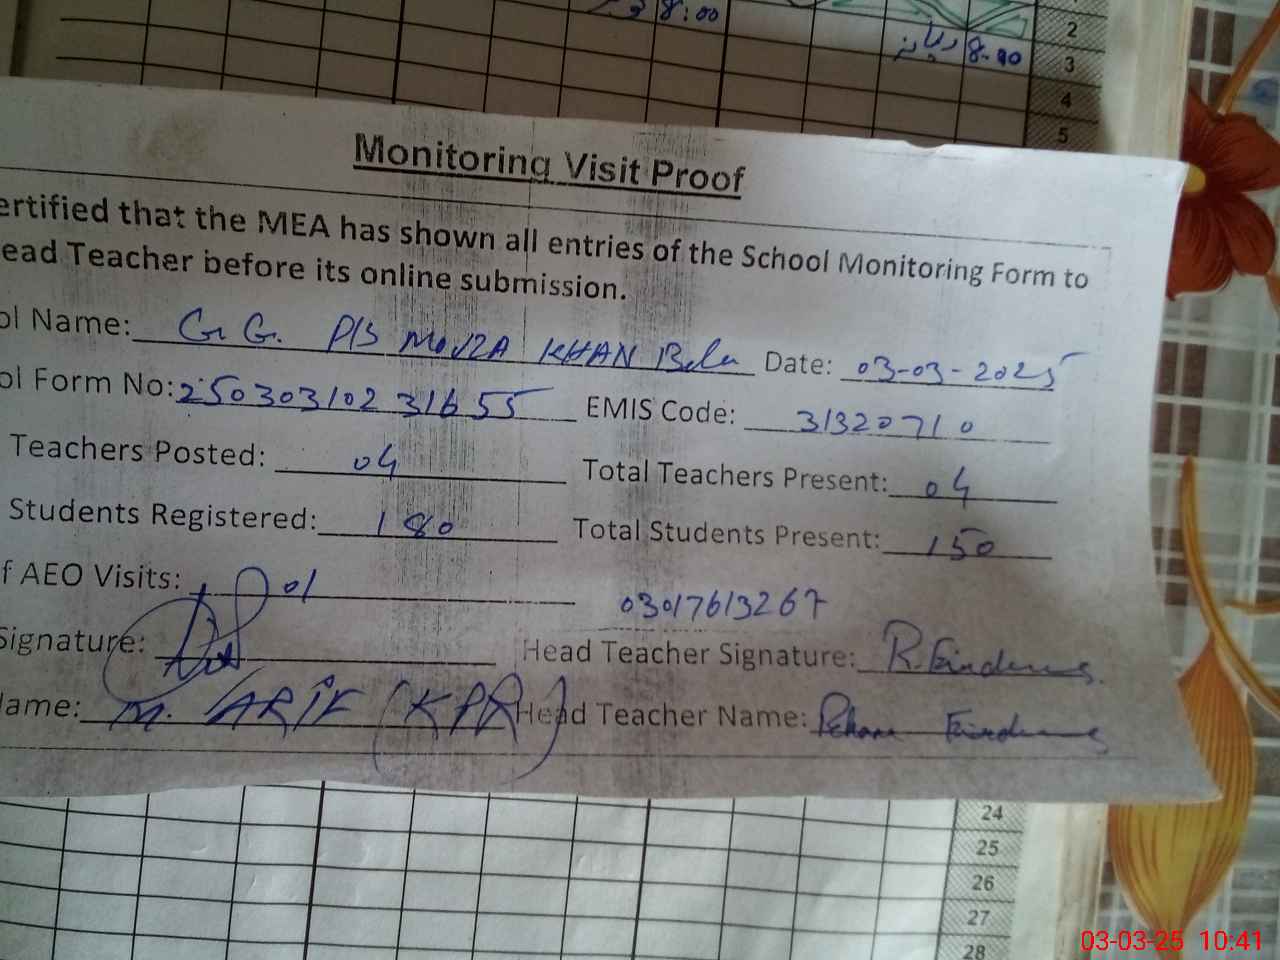 8:00
2
8-00
3
4
5
Monitoring Visit Proof
ertified that the MEA has shown all entries of the School Monitoring Form to
ead Teacher before its online submission.
ol Name: G. G. P/S MOUZA KHAN Bela Date: 03-03-2025
ol Form No: 25030310231655 EMIS Code: 31320710
Teachers Posted: 04 Total Teachers Present: 04
Students Registered: 180 Total Students Present: 150
f AEO Visits: 01
03017613267
Signature: Head Teacher Signature: R. Firdous
lame: M. ARIF (KPR) Head Teacher Name: Rehana Firdous
24
25
26
27
28
03-03-25 10:41